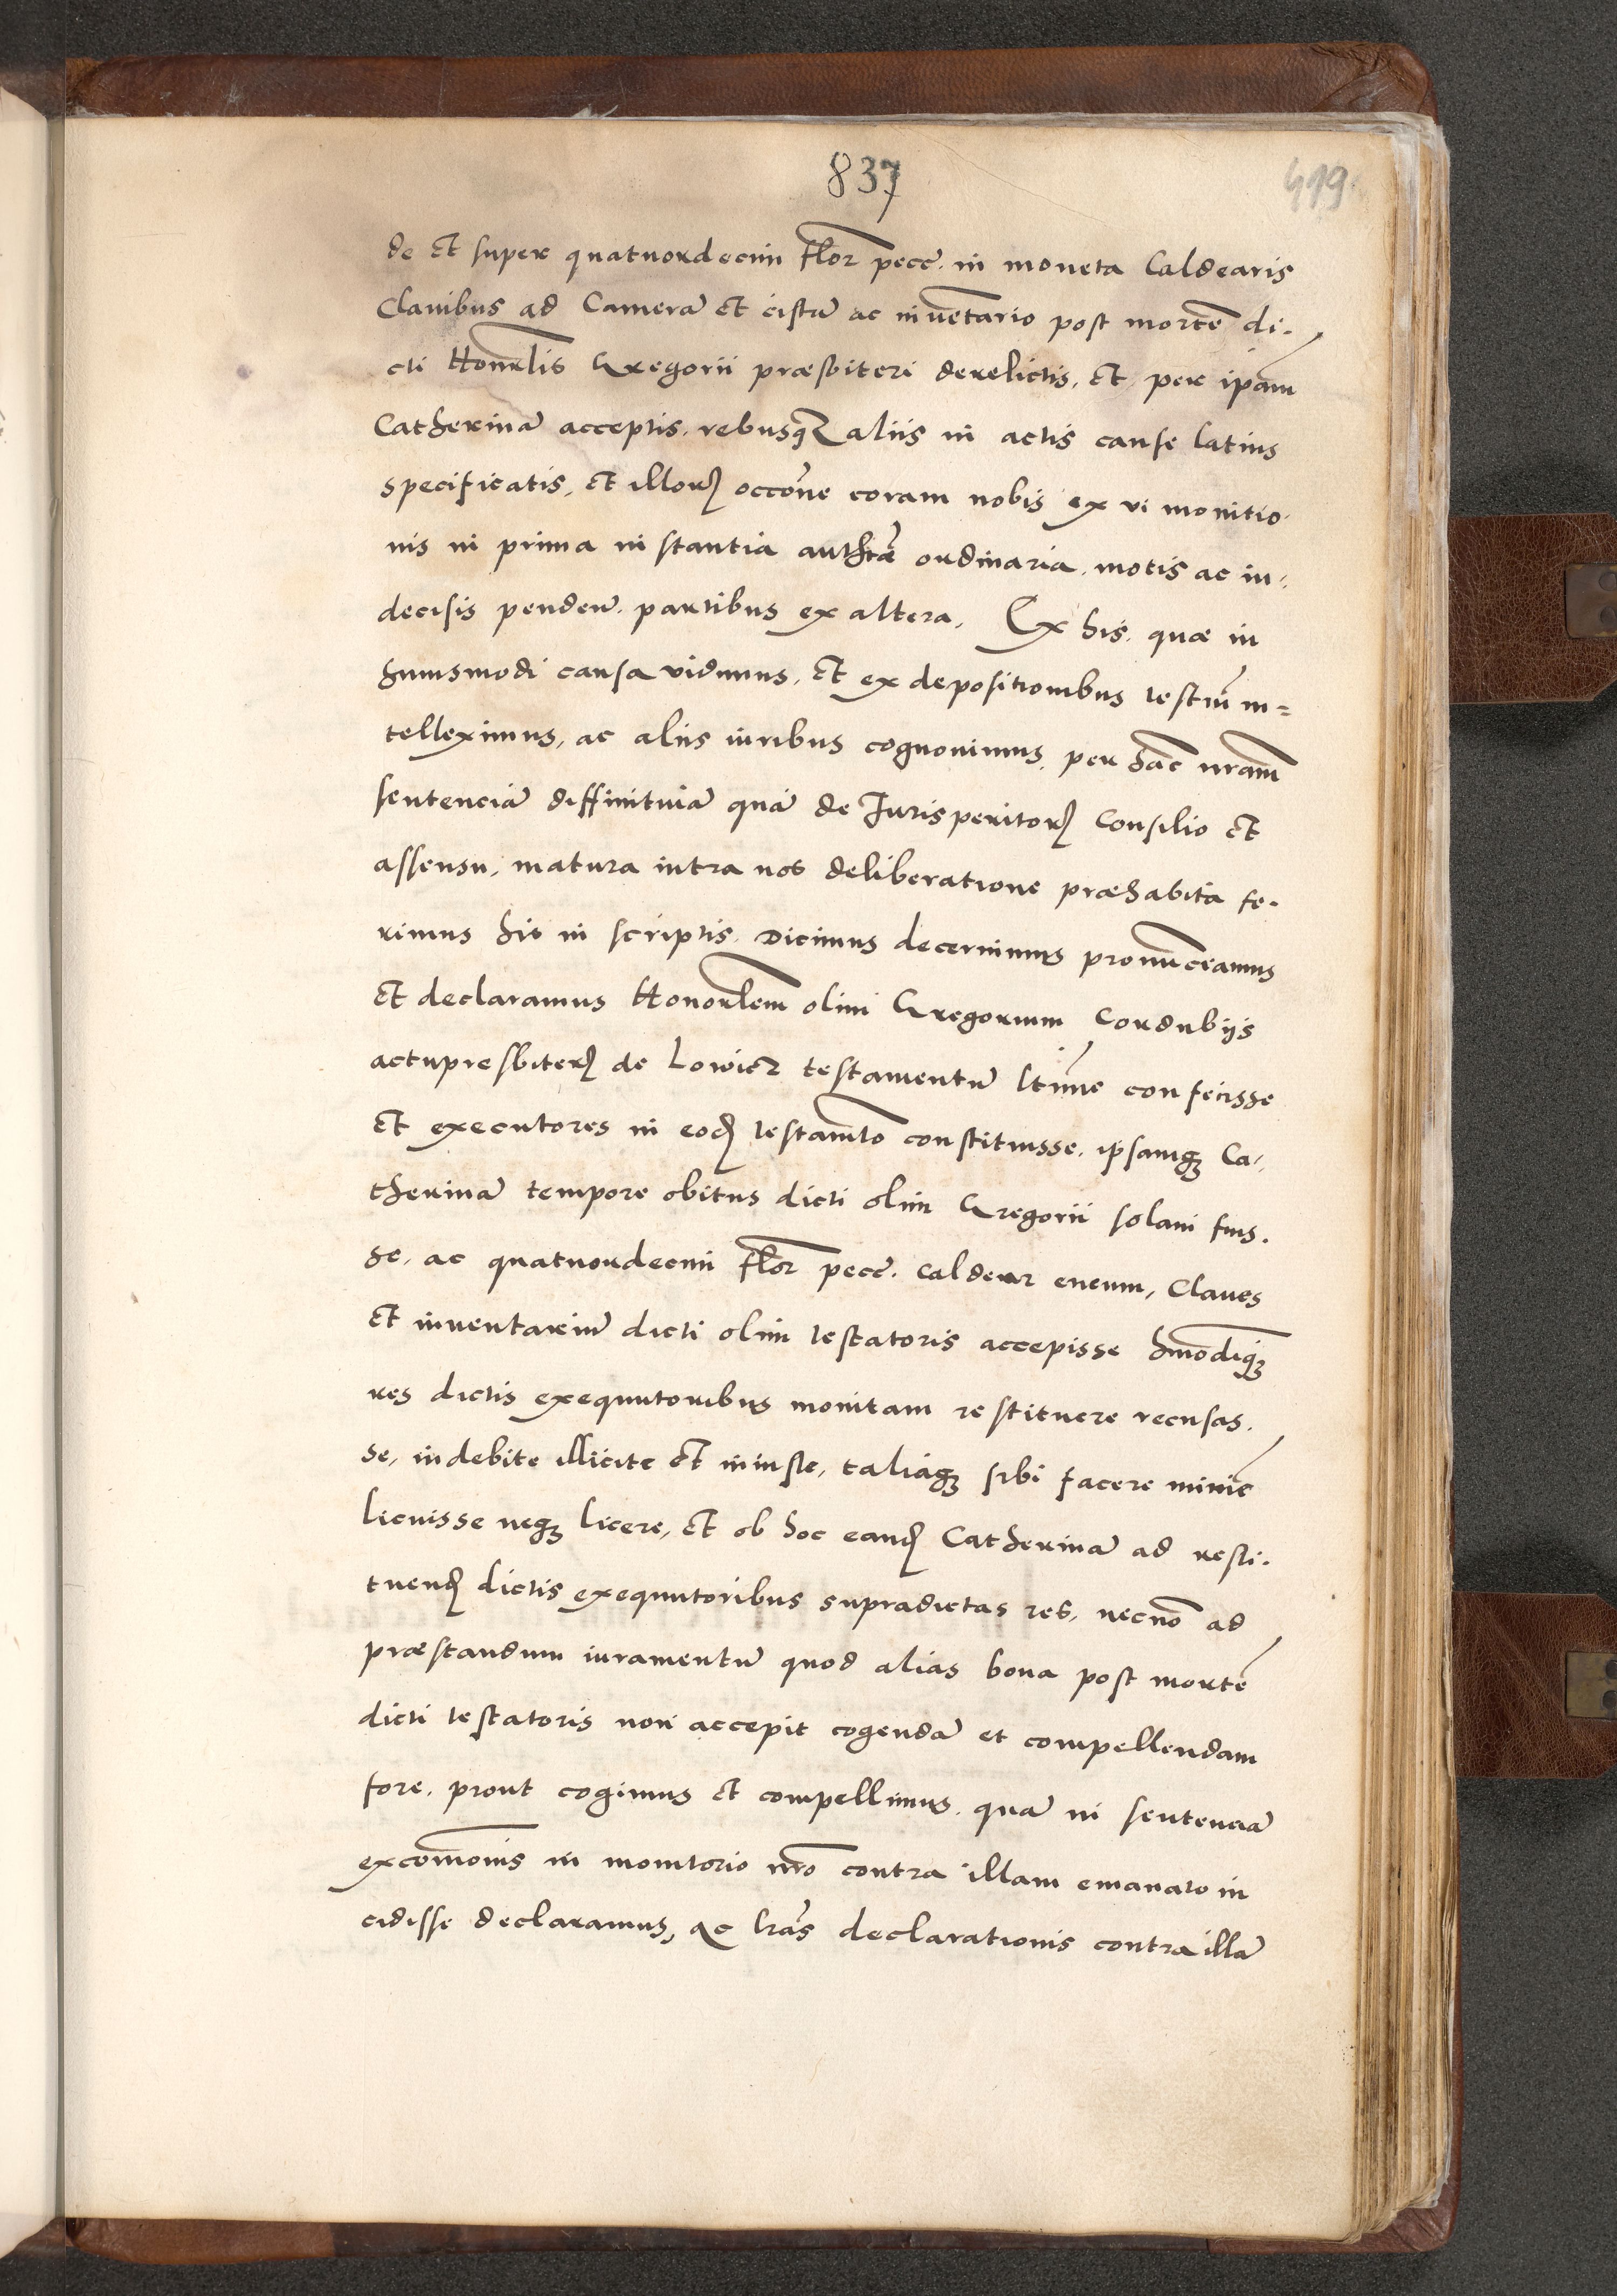 837
419
de et super quatuordecim flor pecc. in moneta Caldearis
Clauibus ad Camerā et cistā ac inuentario post mortē di-
cti Honorlis Gregorii præsbiteri derelictis, et per ipām
Catherinā acceptis. rebusqꝫ aliis in actis cause latius
specificatis, et illoꝝ occōne coram nobis ex vi monitio-
nis in prima instantia authtē ordinaria. motis ac in-
decisis penden. partibus ex altera. Ex his. quæ in
huiusmodi causa vidimus, et ex depositionibus testiū in=
telleximus, ac aliis iuribus cognouimus, per hāc nrām
sentenciā diffinitiuā quā de Jurisperitoꝝ Consilio et
assensu, matura intra nos deliberatione præhabita fe-
rimus his in scriptis. Dicimus decernimus pronūciamus
et declaramus Honorlem olim Gregorium Cordubijs
actupresbiteꝝ de Lowicz testamentū ltīme confecisse
et executores in eod testamto constituisse. ipsamqꝫ Ca-
therinā tempore obitus dicti olim Gregorii solam fuis-
se, ac quatuordecim flor pecc. caldear eneum, Claues
et inuentariū dicti olim testatoris accepisse hmodiqꝫ
res dictis exequutoribus monitam restituere recusas-
se, indebite illicite et iniuste, taliaqꝫ sibi facere minīe
licuisse neqꝫ licere, et ob hoc eand Catherinā ad resti-
tuend dictis exequutoribus supradictas res, necnō ad
præstandum iuramentū quod alias bona post mortē
dicti testatoris non accepit cogendā et compellendam
fore. prout cogimus et compellimus. quā in sentenciā
excōmonis in monitorio nrō contra illam emanato in
cidisse declaramus, ac lrās declarationis contra illā